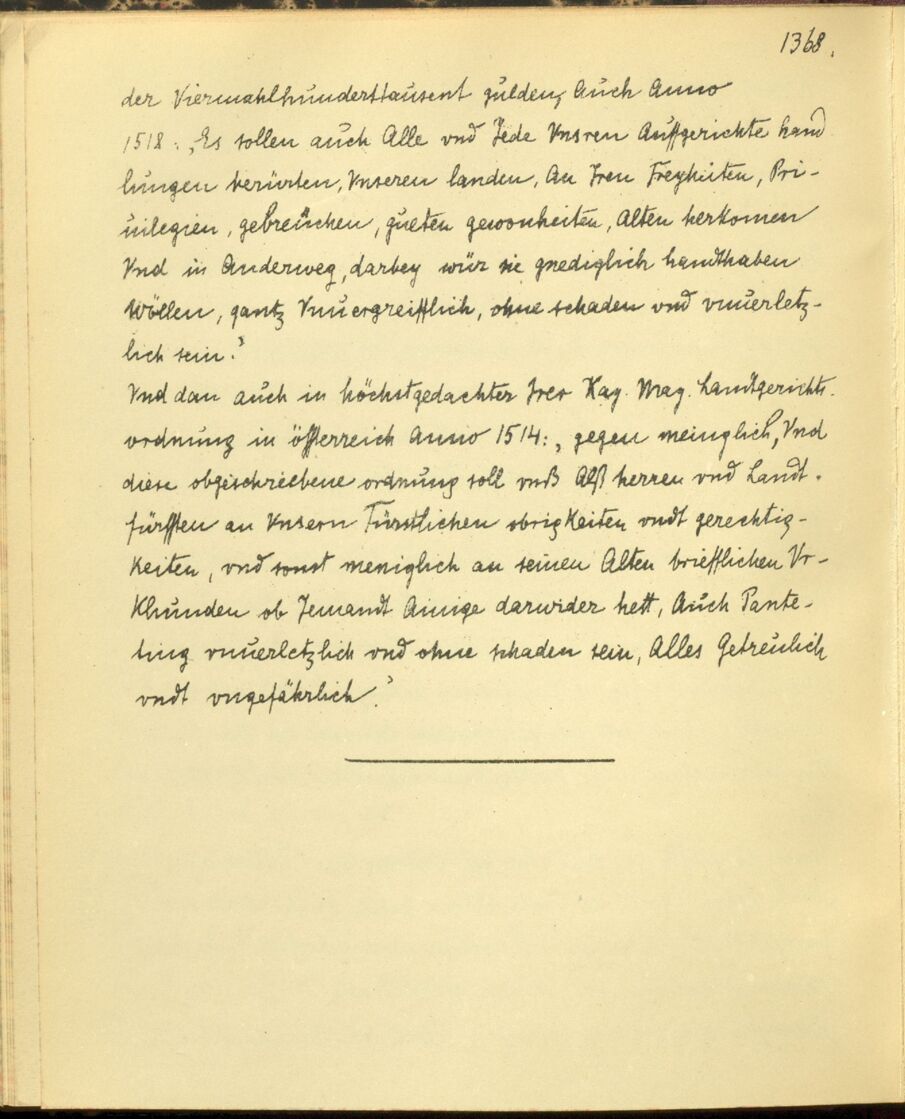 1368.
der Viermahlhunderttausent gulden, Auch Anno
1518: „Es sollen auch Alle vnd Jede Vnsren Auffgerichte hand
lungen berürten, Vnseren landen, An Iren Freyheiten, Pri-
uilegien, gebreüchen, gueten gewonheiten, Alten herkomen
Vnd in Anderweg, darbey wür sie gnediglich handthaben
wöllen, gantz Vnuergreifflich, ohne schaden vnd vnuerletz-
lich sein."
Vnd dan auch in höchstgedachter Irer Kay. May. Landtgerichts-
ordnung in össterreich Anno 1514: „gegen meinglich, Vnd
diese obgeschriebene ordnung soll vnß Alß herren vnd Landt-
fürssten an Vnsern Fürstlichen obrigkeiten vndt gerechtig-
keiten, vnd sonst meniglich an seinen Alten briefflichen Vr-
Khunden ob Jemandt Ainige darwider hett, Auch Pante-
ting vnuerletzlich vnd ohne schaden sein, Alles Getreulich
vndt vngefährlich."